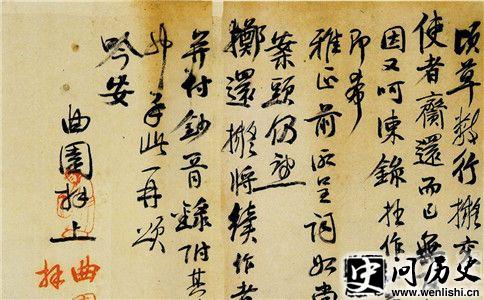 頃草數行擬交
使者齎還而已無
因又呵凍錄拙作
即希
雅正前所呈詞如尚
案頭仍
擲還擬將續作者
并付鈔胥錄附其
此再頌
吟安
曲園拜上
曲園
拜
史问历史
www.wenlishi.cn